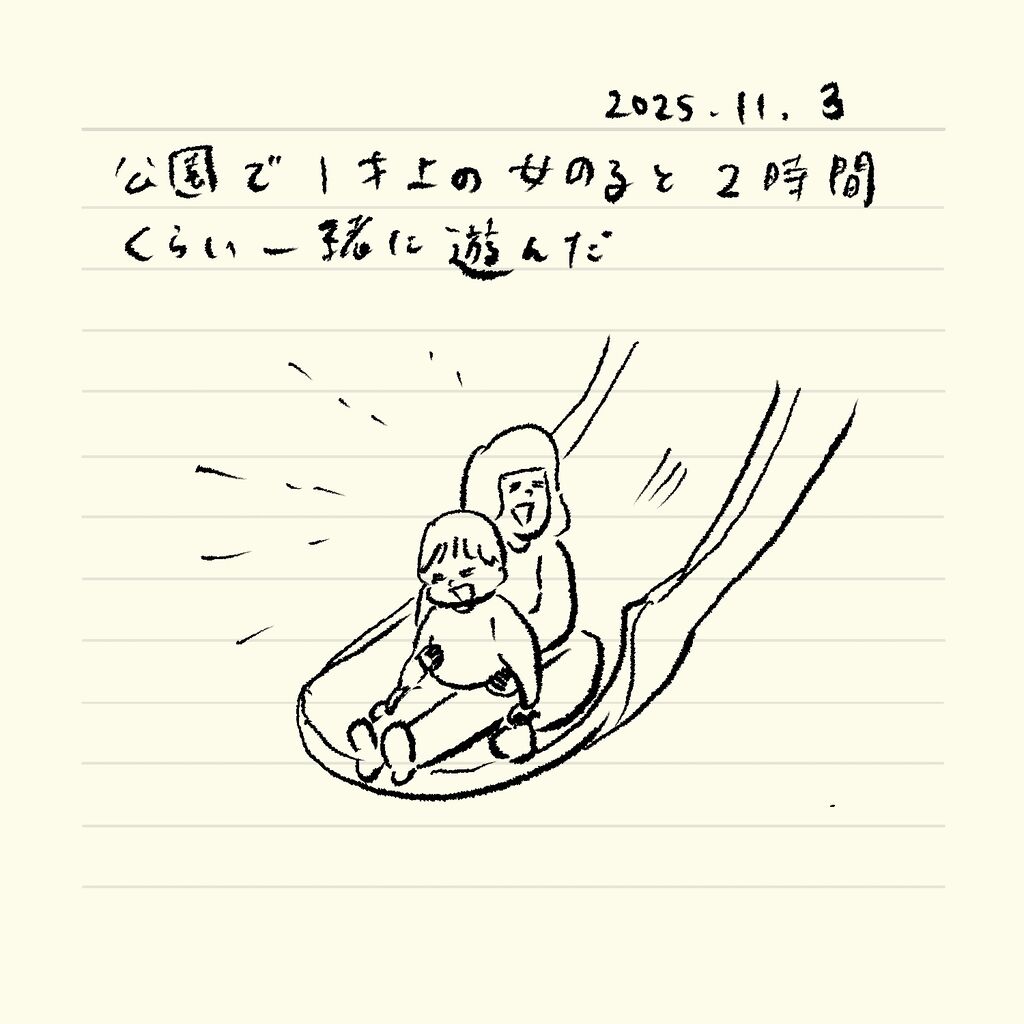 2025.11.3
公園で1才上の女のると2時間
くらい一緒に遊んだ